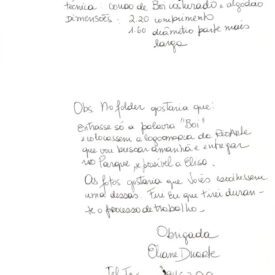 técnica: couro de Boi costurado e algodão
Dimensões: 2.20 comprimento
1.60 diâmetro parte mais
larga
Obs. No folder gostaria que:
Entrasse só a palavra "Boi"
e colocassem a logomarca da
que vou buscar amanhã e entregar
no Parque, é possível a Elisa.
As fotos gostaria que vocês escolhessem
uma dessas. Fui Eu que tirei duran-
te o processo de trabalho.
Obrigada
Eliane Duarte